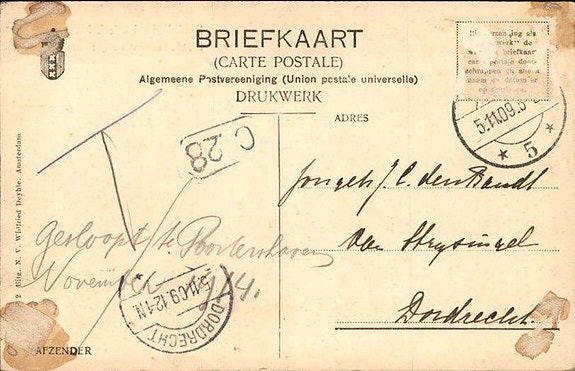 BRIEFKAART
(CARTE POSTALE)
Algemeene Postvereeniging (Union postale universelle)
DRUKWERK
ADRES
5.11.09.3
* 5 *
C.28
T
Jongeh J. C. den Bandt
Van Strijsingel
Dordrecht.
Gesloopt te Poortershaven
November 1924.
DORDRECHT
5.11.09.12-1N
Uitg. N. V. Wilfried Deyhle, Amsterdam
AFZENDER